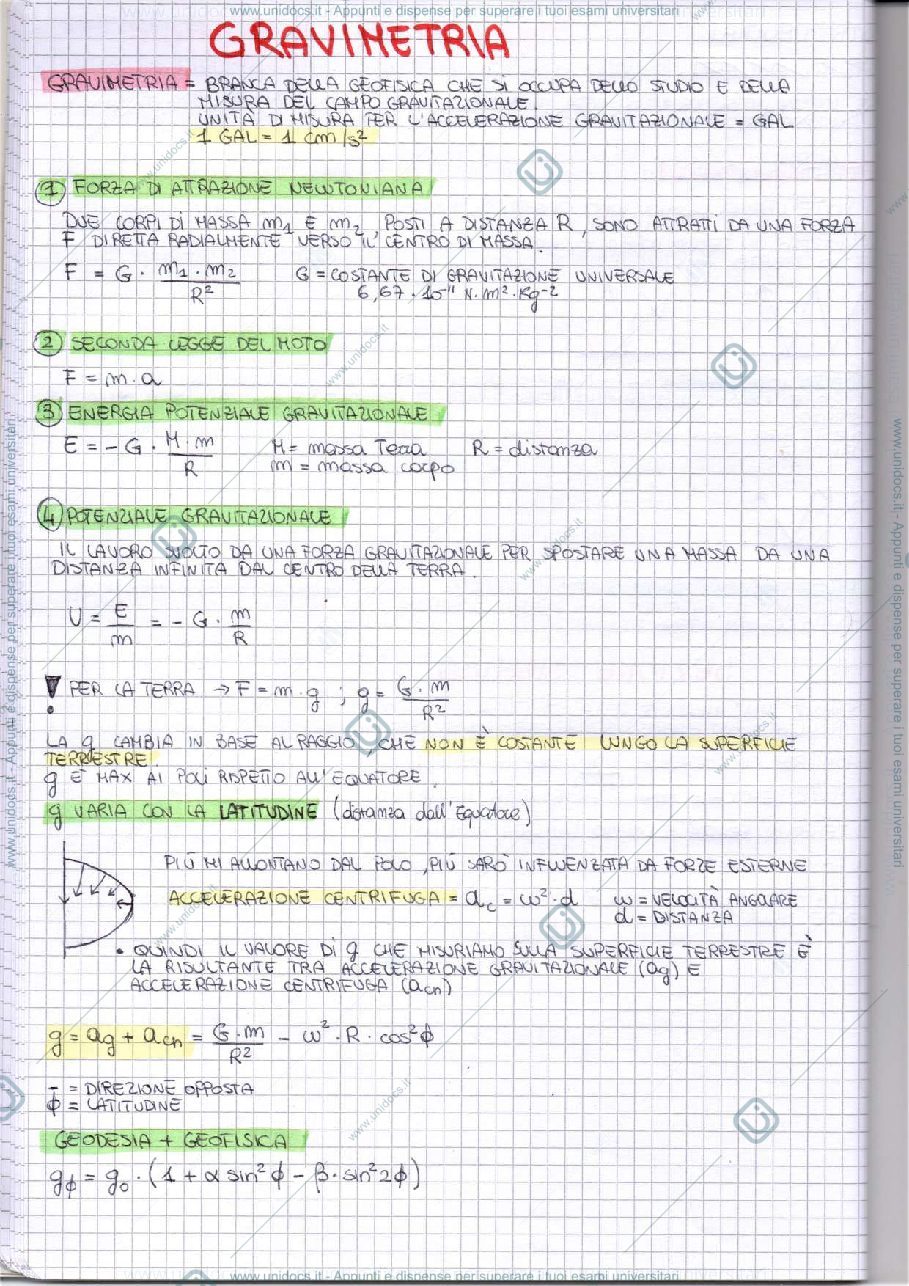 www.unidocs.it - Appunti e dispense per superare i tuoi esami universitari
GRAVIMETRIA
GRAVIMETRIA = BRANCA DELLA GEOFISICA CHE SI OCCUPA DELLO STUDIO E DELLA
MISURA DEL CAMPO GRAVITAZIONALE.
UNITÀ DI MISURA PER L'ACCELERAZIONE GRAVITAZIONALE = GAL
1 GAL = 1 cm/s²
① FORZA DI ATTRAZIONE NEWTONIANA
DUE CORPI DI MASSA m₁ E m₂, POSTI A DISTANZA R, SONO ATTRATI DA UNA FORZA
F DIRETTA RADIALMENTE VERSO IL CENTRO DI MASSA.
F = G · m₁ · m₂ / R² G = COSTANTE DI GRAVITAZIONE UNIVERSALE
6,67 · 10⁻¹¹ N · m² · Kg⁻²
② SECONDA LEGGE DEL MOTO
F = m · a
③ ENERGIA POTENZIALE GRAVITAZIONALE
E = - G · M · m / R M = massa Terra R = distanza
m = massa corpo
④ POTENZIALE GRAVITAZIONALE
IL LAVORO SVOLTO DA UNA FORZA GRAVITAZIONALE PER SPOSTARE UNA MASSA DA UNA
DISTANZA INFINITA DAL CENTRO DELLA TERRA.
U = E / m = - G · m / R
! PER LA TERRA → F = m · g ; g = G · m / R²
LA g CAMBIA IN BASE AL RAGGIO, CHE NON È COSTANTE LUNGO LA SUPERFICIE
TERRESTRE!
g È MAX AI POLI RISPETTO ALL'EQUATORE.
g VARIA CON LA LATITUDINE (distanza dall'Equatore)
PIÙ MI ALLONTANO DAL POLO, PIÙ SARÒ INFLUENZATA DA FORZE ESTERNE
ACCELERAZIONE CENTRIFUGA = a꜀ = ω² · d ω = VELOCITÀ ANGOLARE
d = DISTANZA
• QUINDI IL VALORE DI g CHE MISURIAMO SULLA SUPERFICIE TERRESTRE È
LA RISULTANTE TRA ACCELERAZIONE GRAVITAZIONALE (ag) E
ACCELERAZIONE CENTRIFUGA (acn)
g = ag + acn = G · m / R² - ω² · R · cos²ϕ
- = DIREZIONE OPPOSTA
ϕ = LATITUDINE
GEODESIA + GEOFISICA
gϕ = g₀ · (1 + α sin²ϕ - β · sin²2ϕ)
www.unidocs.it - Appunti e dispense per superare i tuoi esami universitari